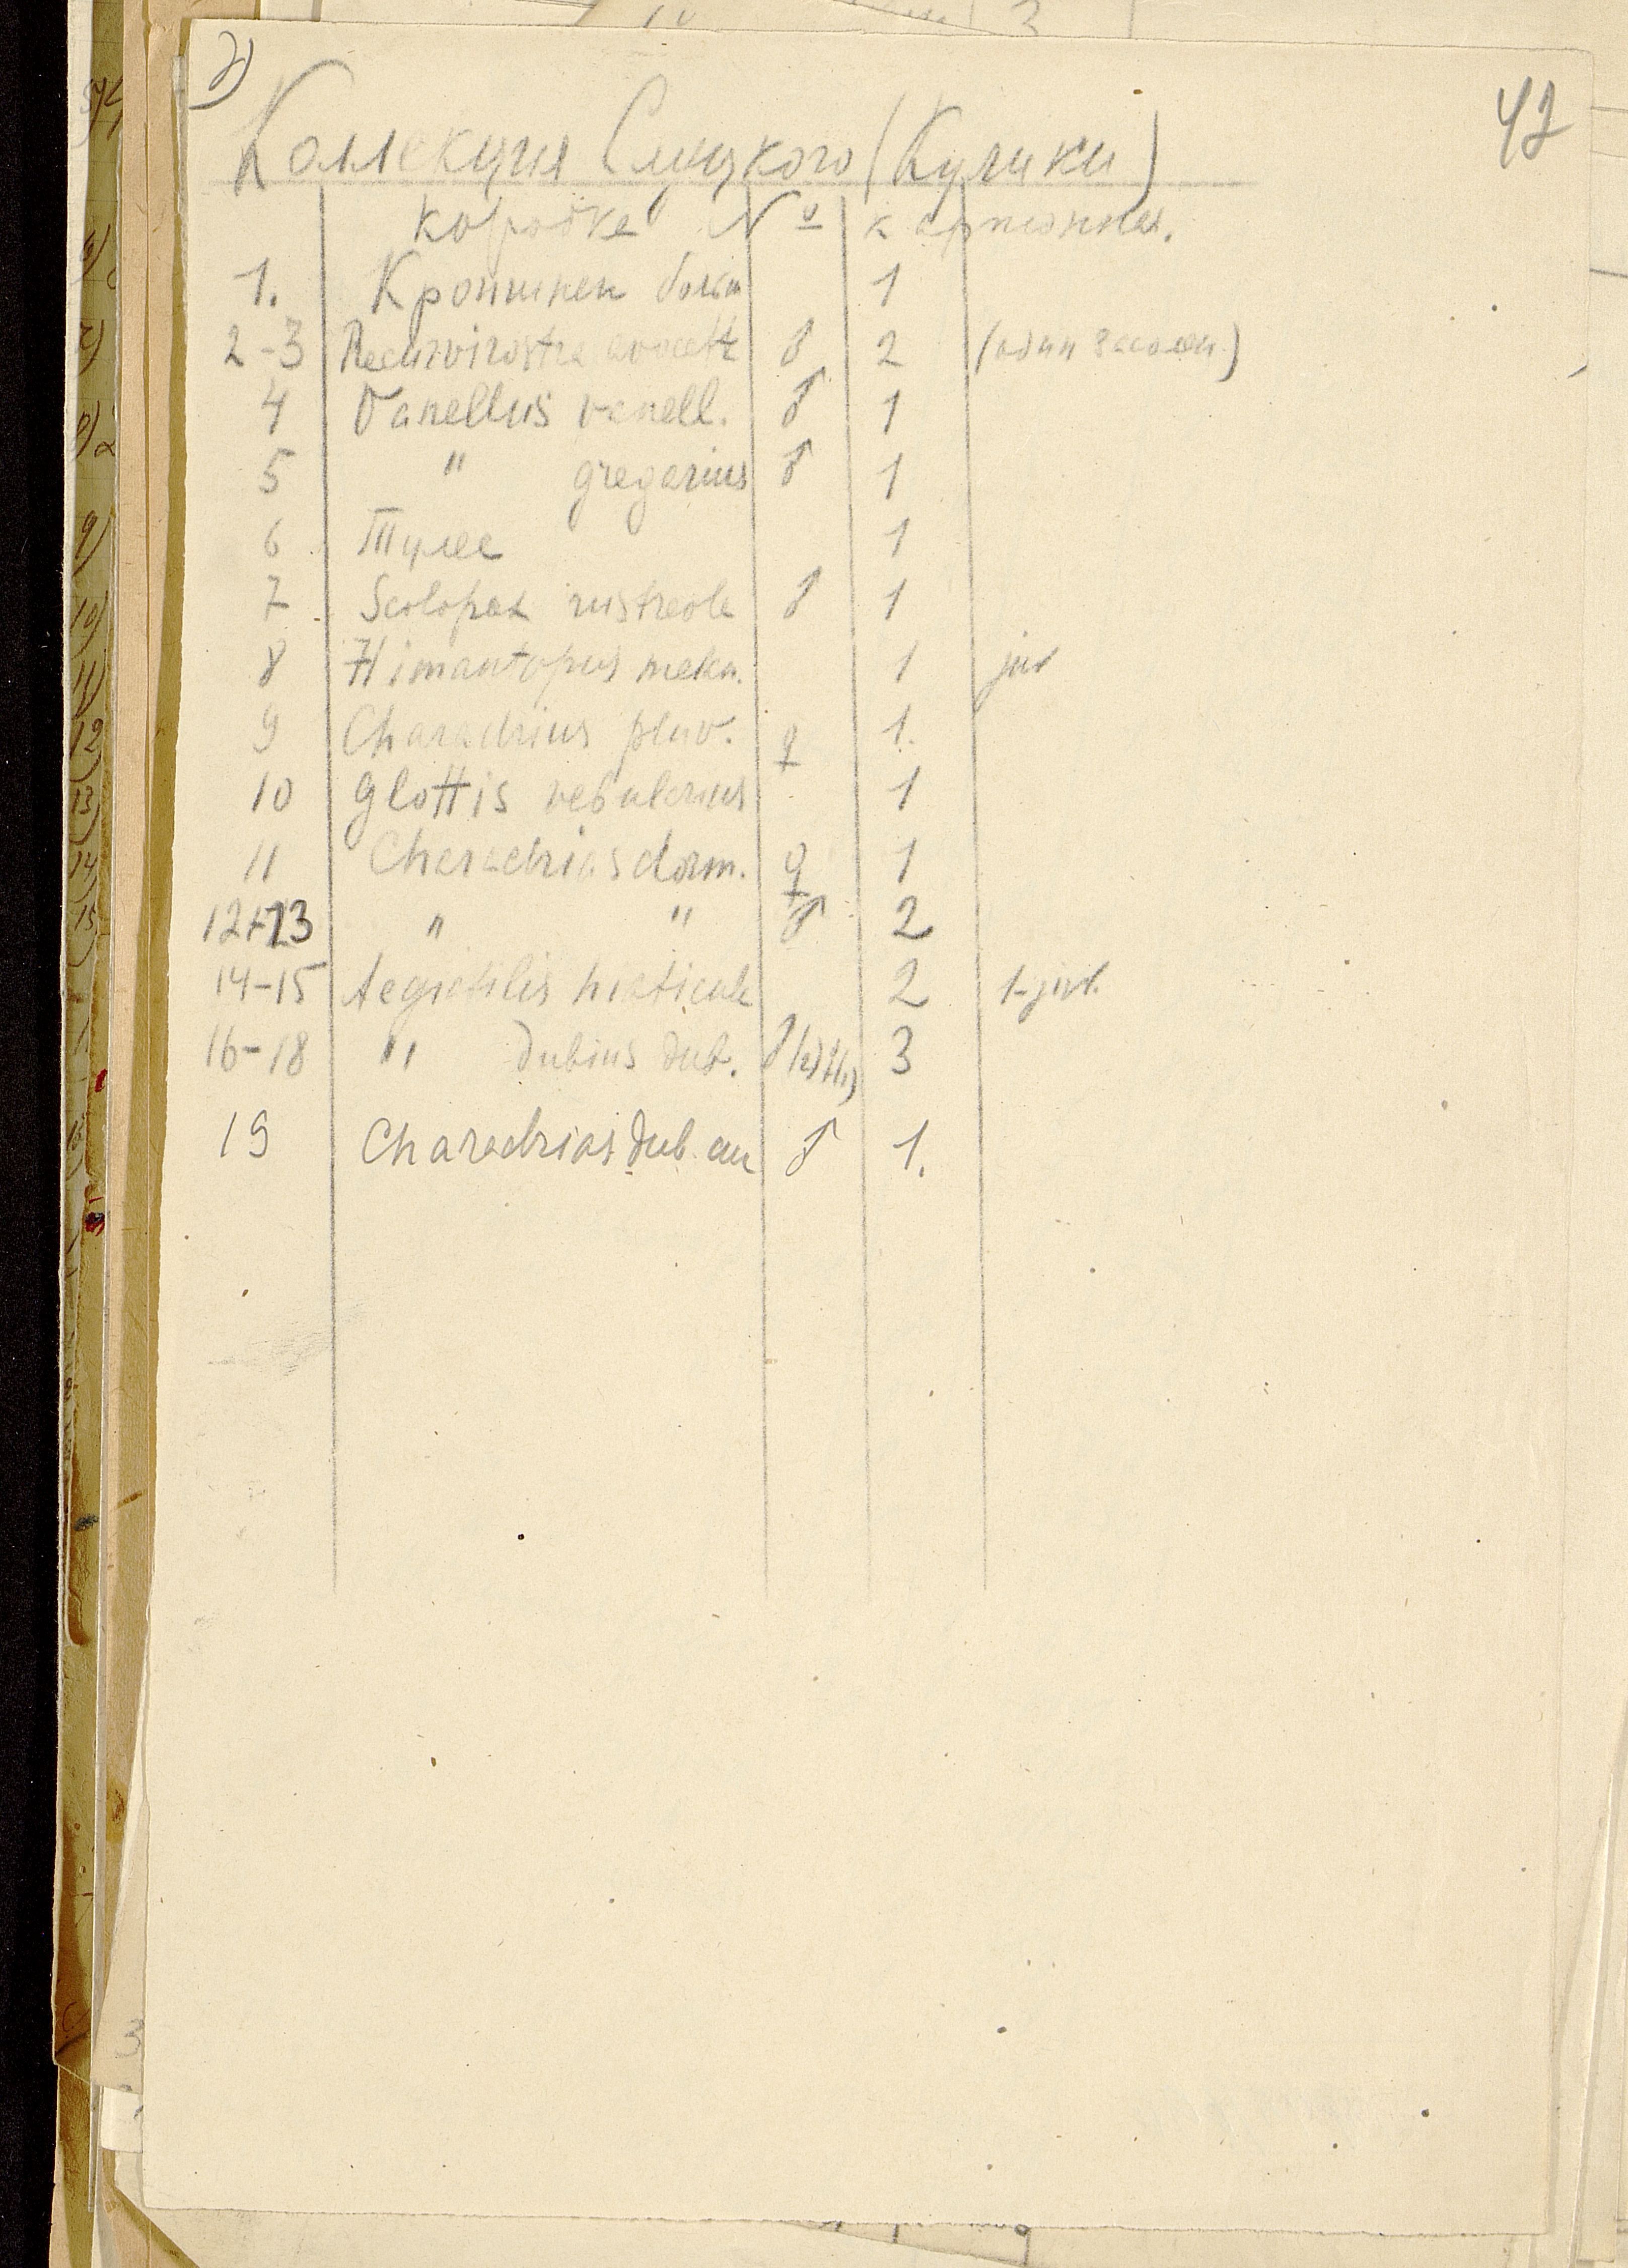 2)
42
Коллекция Слуцкого (Кулики)
коробке № картонная.
1. Кроншнеп больш 1
2-3 Recurvirostra avocetta ♂ 2 (один засолен.)
4 Vanellus vanell. ♂ 1
5 " gregarius ♂ 1
6 Тулес 1
7 Scolopax rusticola ♂ 1
8 Himantopus 1 juv
9 Charadrius pluv. ♀ 1.
10 Glottis nebularius 1
11 Charadrius dorm. ♀ 1
12+13 " " ♂ 2
14-15 Aegialitis hiaticula 2 1-juv.
16-18 " dubius dub. ♂(2) ♀(1) 3
19 Charadrius dub. cu ♂ 1.